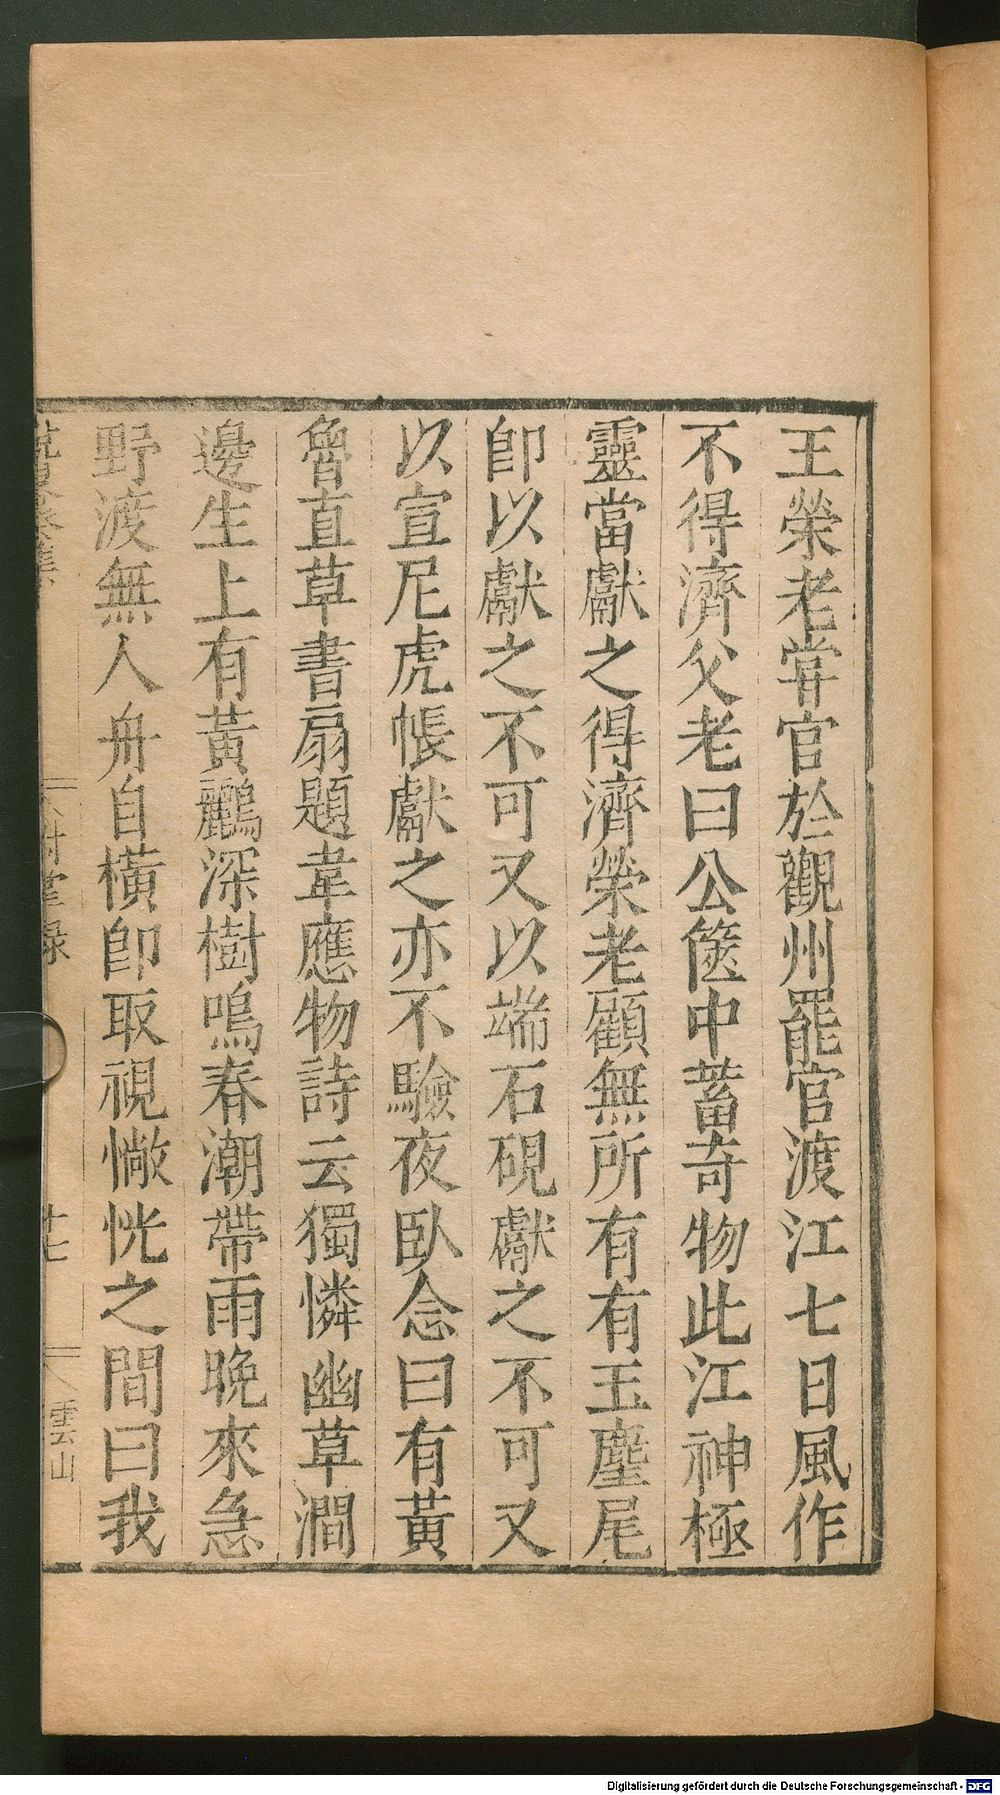 王榮老甞官於觀州罷官渡江七日風作
不得濟父老曰公篋中蓄奇物此江神極
靈當獻之得濟榮老顧無所有有玉麈尾
卽以獻之不可又以端石硯獻之不可又
以宣尼虎帳獻之亦不驗夜臥念曰有黃
魯直草書扇題韋應物詩云獨憐幽草澗
邊生上有黃鸝深樹鳴春潮帶雨晚來急
野渡無人舟自橫卽取視惝恍之間曰我
雲山
Digitalisierung gefördert durch die Deutsche Forschungsgemeinschaft - DFG